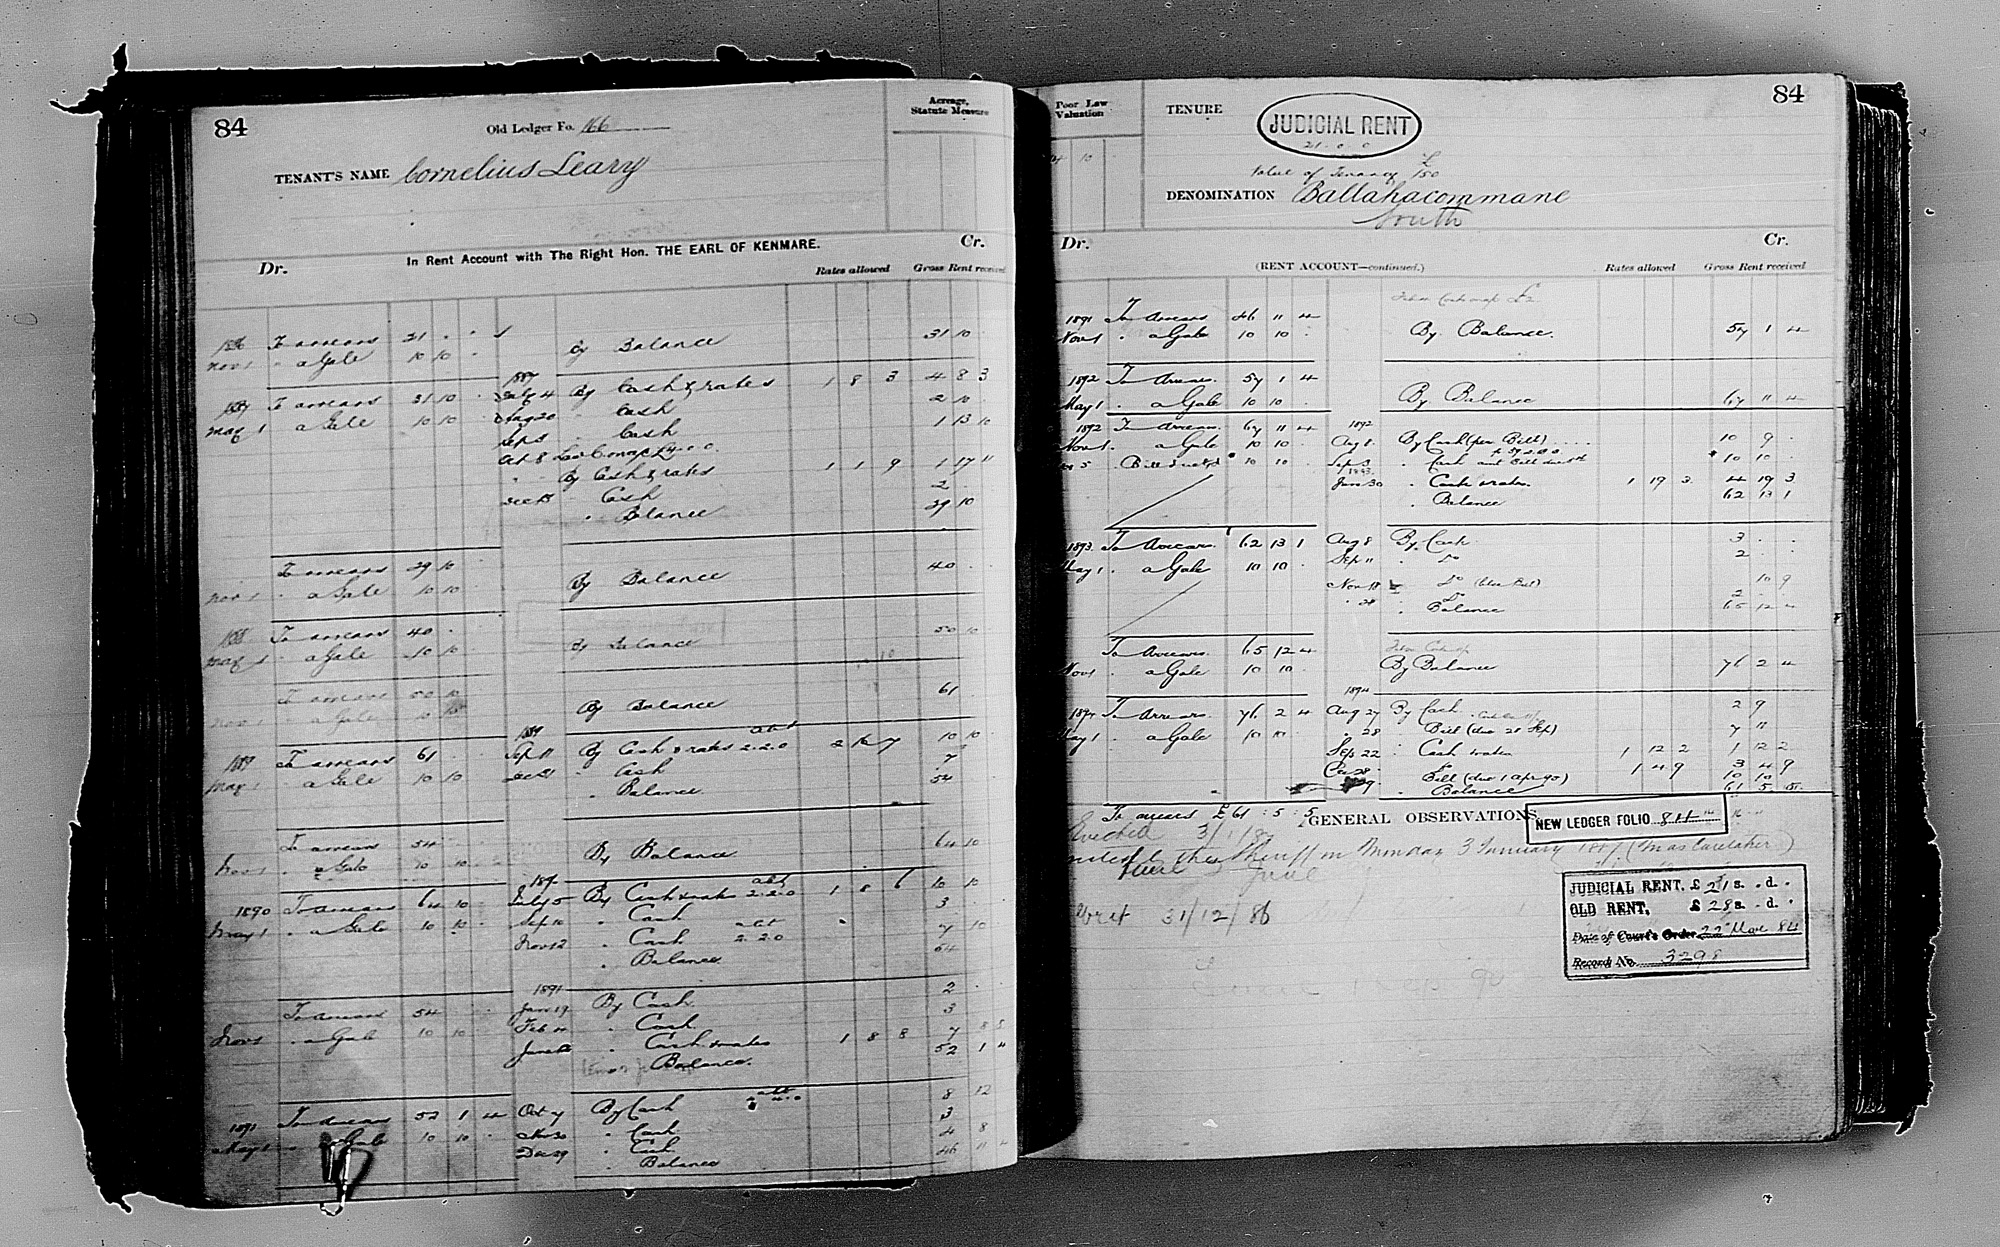 84
Old Ledger Fo. 166
Acreage, Statute Measure
TENANT'S NAME Cornelius Leary
In Rent Account with The Right Hon. THE EARL OF KENMARE.
Dr. Cr.
Rates allowed Gross Rent received
1886 To arrears 21 . .
Nov 1 " a Gale 10 10 . By Balance 31 10 .
1887 To arrears 31 10 . 1887 By Cash & rates 1 8 3 4 8 3
May 1 " a Gale 10 10 . Aug 20 " Cash 2 10 .
Sep 3 " Cash 1 13 10
Oct 8
" By Cash & rates 1 1 9 1 17 11
Dec 15 " Cash 2 .
" Balance 29 10
To arrears 29 10
Nov 1 " a Gale 10 10 By Balance 40 . .
1888 To arrears 40 .
May 1 " a Gale 10 10 . By Balance 50 10
To arrears 50 10
Nov 1 " a Gale 10 10 By Balance 61 .
1889 To arrears 61 . 1889 Sep 11 By Cash & rates abt 2.2.0 2 16 7 10 10 .
May 1 " a Gale 10 10 Dec 21 " Cash 7
" Balance 54
To arrears 54
Nov 1 " a Gale 10 10 By Balance 64 10
1890 To arrears 64 10 1890 July 5 By Cash & rates abt 2.2.0 1 8 6 10 10
May 1 " a Gale 10 10 Sep 10 " Cash 3 .
Nov 12 " Cash abt 2.2.0 7 10
" Balance 64
To arrears 54 1891 Jan 19 By Cash 2 . .
Nov 1 " a Gale 10 10 Feb 4 " Cash 3
June " Cash & rates 1 8 8 7 8 8
Balance 52 1 4
1891 To arrears 52 1 4 Oct 7 By Cash abt 8 12
May 1 " a Gale 10 10 . Nov 30 " Cash 3
Dec 29 " Cash 4 8
" Balance 46 11 4
84
Poor Law Valuation
TENURE JUDICIAL RENT
21 . 0 . 0
Value of Tenancy £150
DENOMINATION Ballahacommane
South
Dr. Cr.
(RENT ACCOUNT—continued.)
Rates allowed Gross Rent received
1891 To Arrears 46 11 4
Nov 1 " a Gale 10 10 . By Balance. 57 1 4
1892 To Arrears. 57 1 4
May 1 " a Gale 10 10 . By Balance 67 11 4
1892 To Arrears. 67 11 4 1892 Aug 8 By Cash (per Bill) .... 10 9 .
Nov 1 " a Gale 10 10 . Sep 3 " Cash 10 10 .
1893 Jan 30 " Cash & rates. 1 19 3 4 19 3
" Balance 62 13 1
1893. To Arrears. 62 13 1 Aug 8 By Cash 3 . .
May 1 " a Gale 10 10 . Sep 11 " Do 2 . .
Nov 18 " Do 10 9
" 28 " Do 2 .
" Balance 65 12 4
To Arrears 65 12 4
Nov 1 " a Gale 10 10 . By Balance 76 2 4
1894 To Arrears 76 2 4 1894 Aug 27 By Cash 2 9
May 1 " a Gale 10 10 . " 28 " Bill (due 28 Sep) 7 11
Sep 22 " Cash & rates 1 12 2 1 12 2
1 4 9 3 4 9
Bill (due 1 Apr 95) 10 10
" Balance 61 5 5
To arrears £61 : 5 : 5
GENERAL OBSERVATIONS.
NEW LEDGER FOLIO 84
Evicted 3/1/87
the Sheriff on Monday 3 January 1887 (in as Caretaker)
Writ 31/12/86
JUDICIAL RENT, £ 21 s. . d. .
OLD RENT, £ 28 s. . d. .
Date of Court's Order 22 Mar 84
Record No. 3298